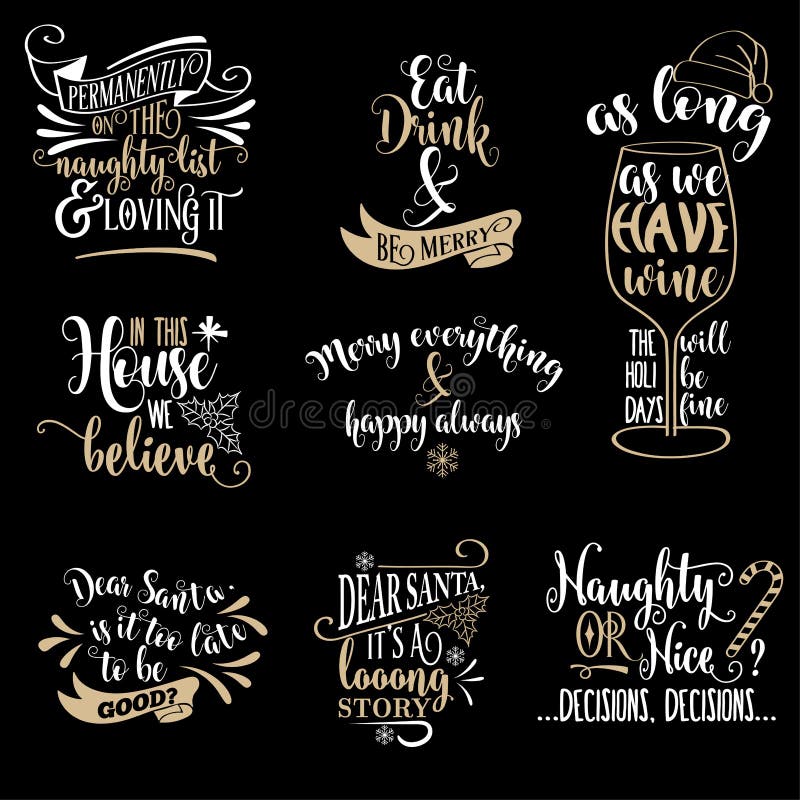 PERMANENTLY
ON THE
naughty list
& LOVING IT
Eat
Drink
&
BE MERRY
as long
as we
HAVE
wine
THE
HOLI
DAYS
will
be
fine
IN THIS
House
WE
believe
Merry everything
&
happy always
Dear Santa.
is it too late
to be
GOOD?
DEAR SANTA,
IT'S A
looong
STORY
Naughty
OR Nice?
...DECISIONS, DECISIONS...
dreamstime